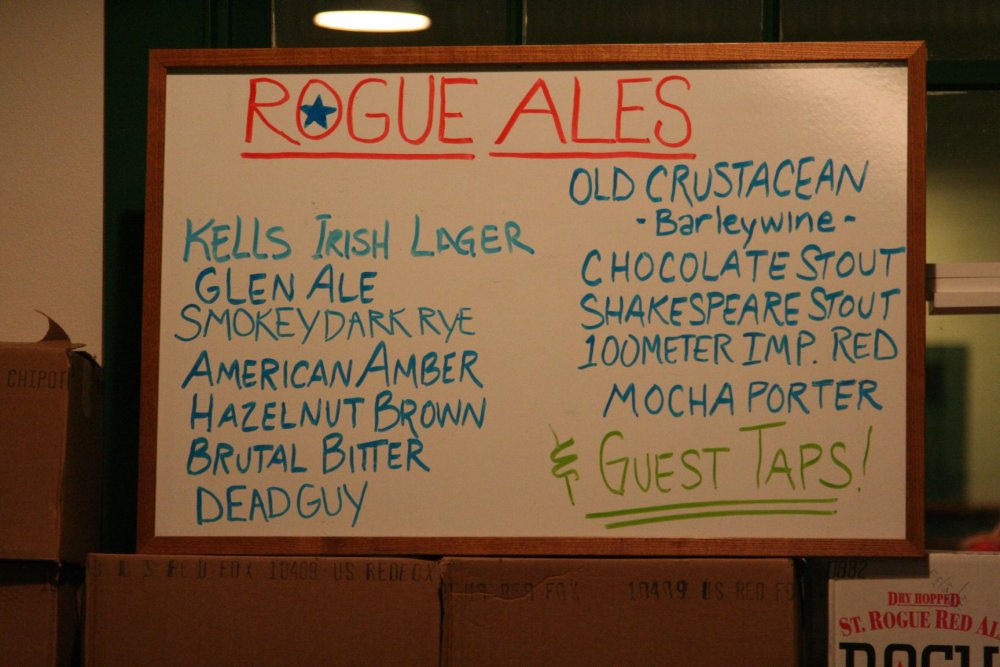 ROGUE ALES
KELLS IRISH LAGER
GLEN ALE
SMOKEY DARK RYE
AMERICAN AMBER
HAZELNUT BROWN
BRUTAL BITTER
DEAD GUY
OLD CRUSTACEAN
- Barleywine -
CHOCOLATE STOUT
SHAKESPEARE STOUT
100 METER IMP. RED
MOCHA PORTER
& GUEST TAPS!
US RED FOX
DRY HOPPED
ST. ROGUE RED